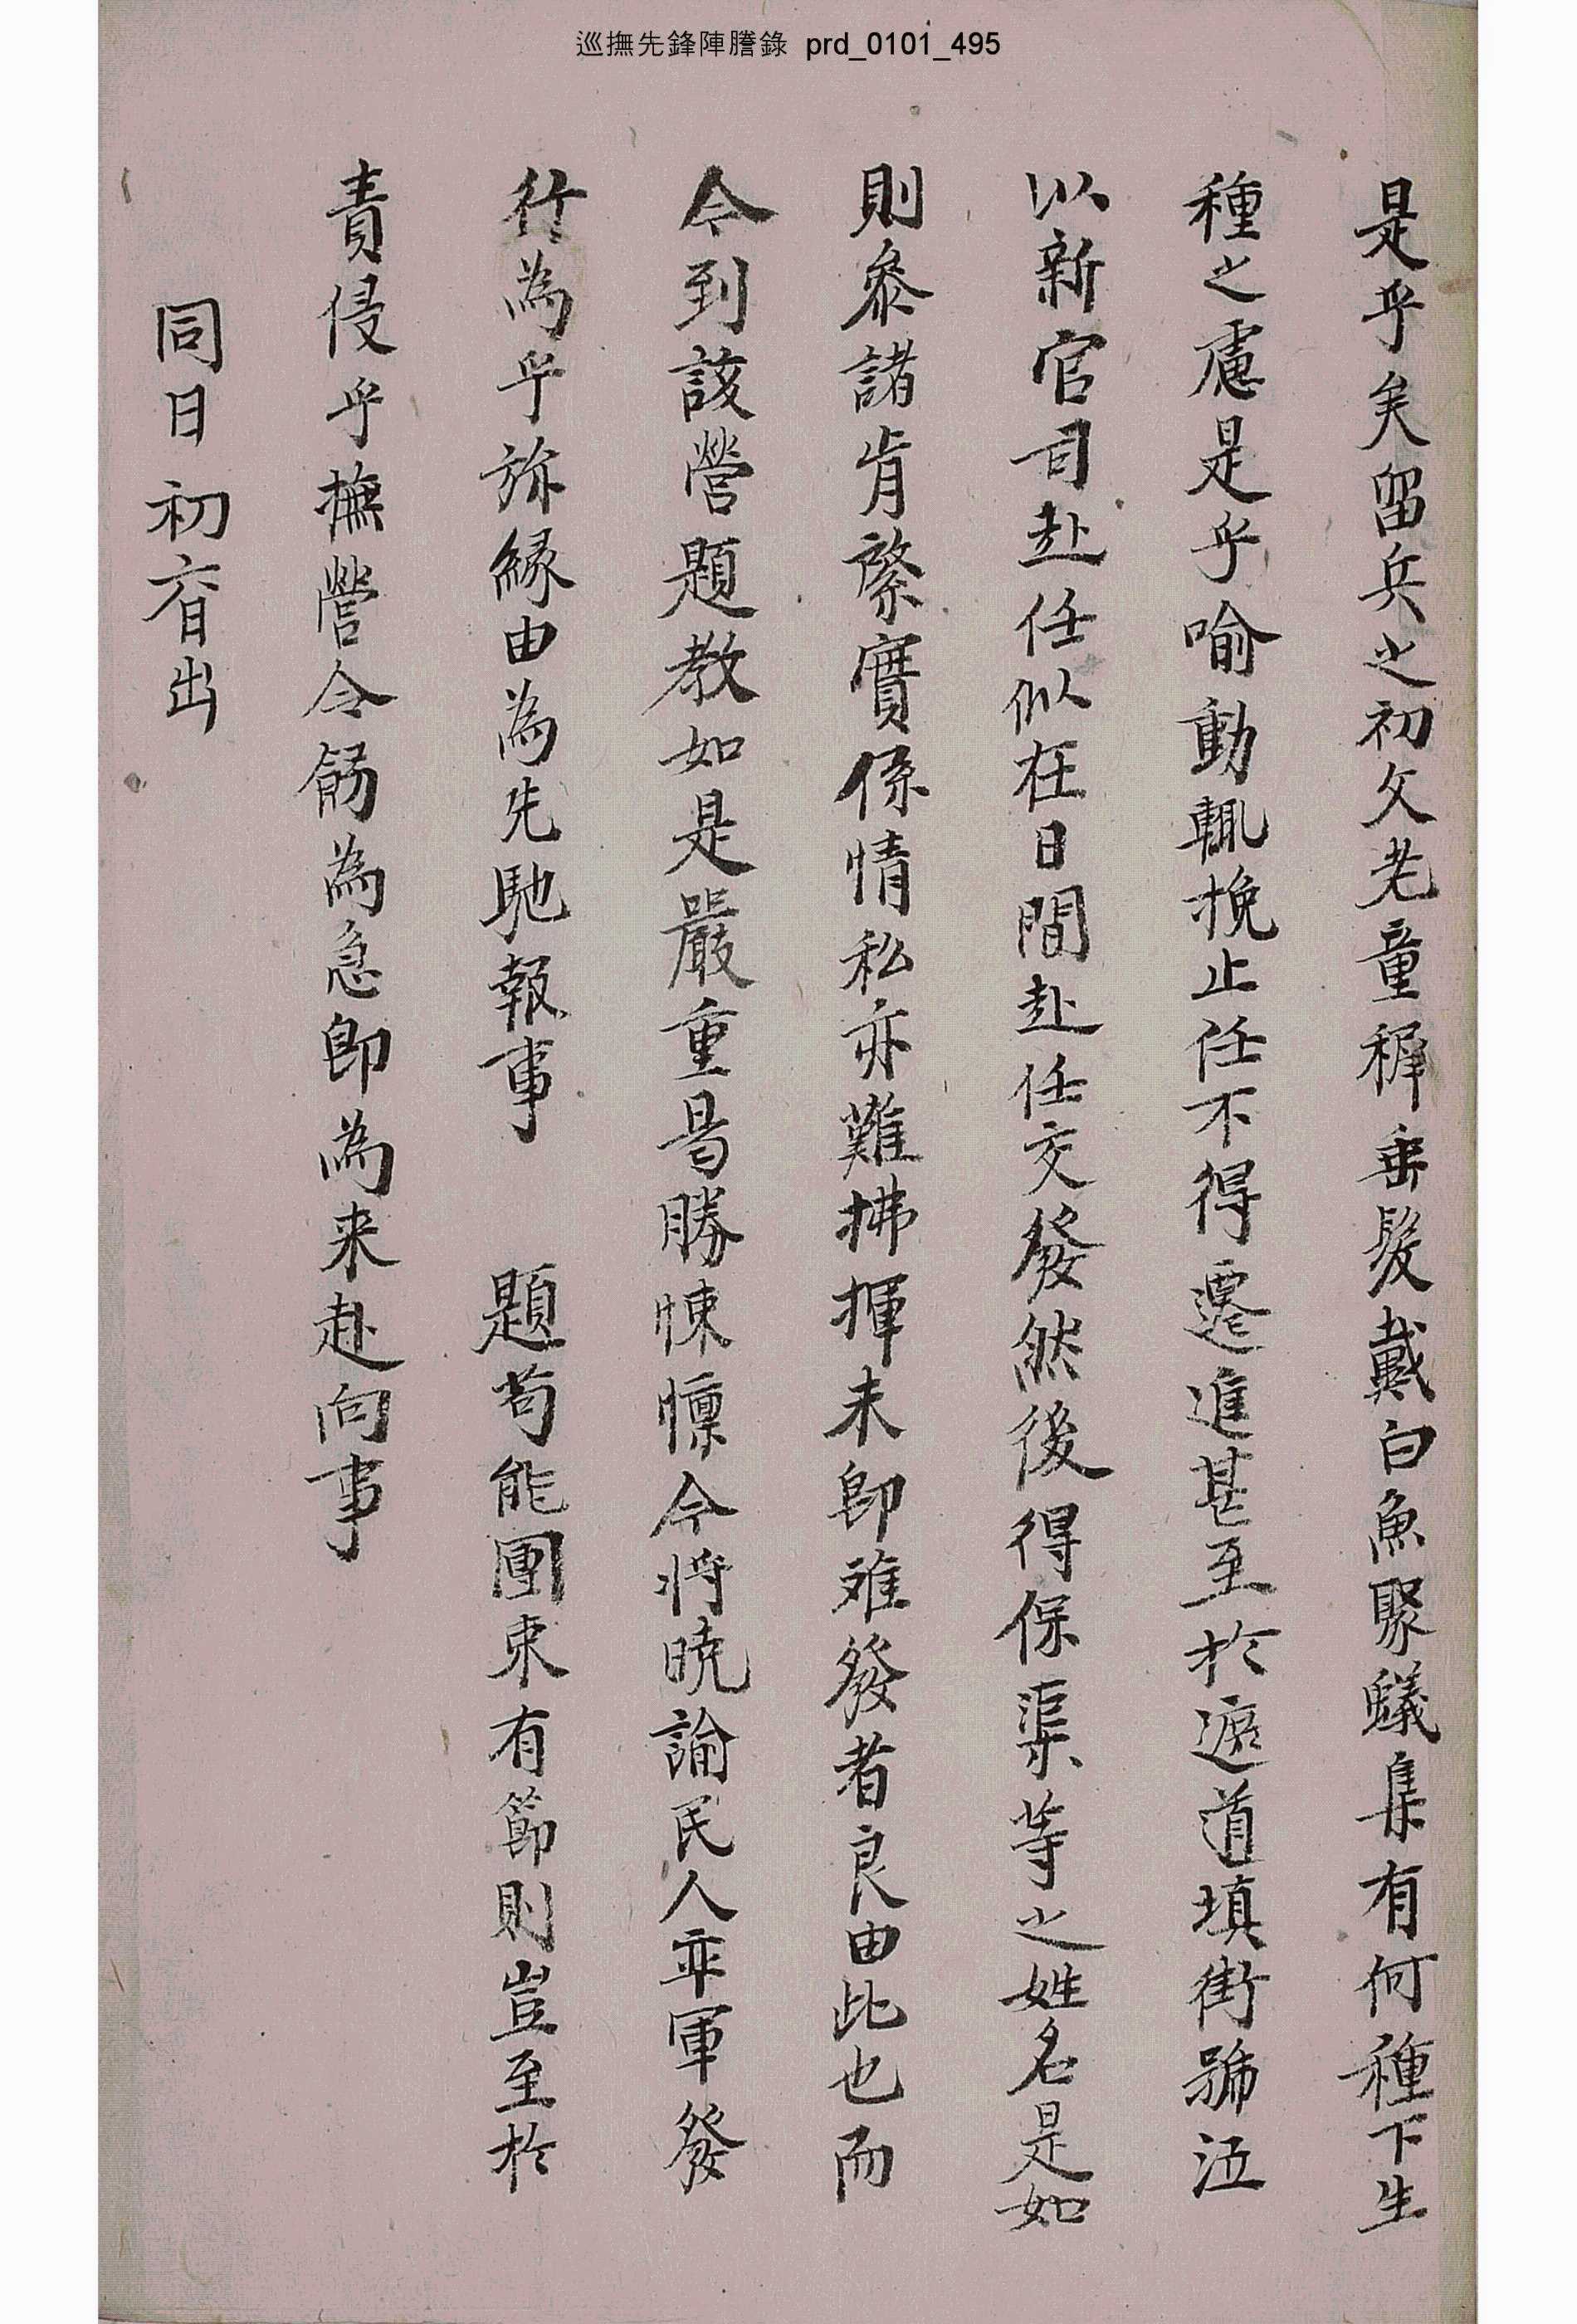 巡撫先鋒陣謄錄 prd_0101_495
是乎矣留兵之初父老童穉垂髮戴白魚聚蟻集有何種下生
種之慮是乎喩動輒挽止任不得邁進甚至於遮道填街號泣
以新官司赴任似在日間赴任交發然後得保渠等之姓名是如
則叅諸肯綮實係情私亦難拂揮未卽難發者良由此也而
今到該營題敎如是嚴重曷勝悚懍今將曉諭民人率軍發
行為乎旀緣由為先馳報事 題苟能團束有節則豈至於
責侵乎撫營令飭為急卽為来赴向事
同日初昏出